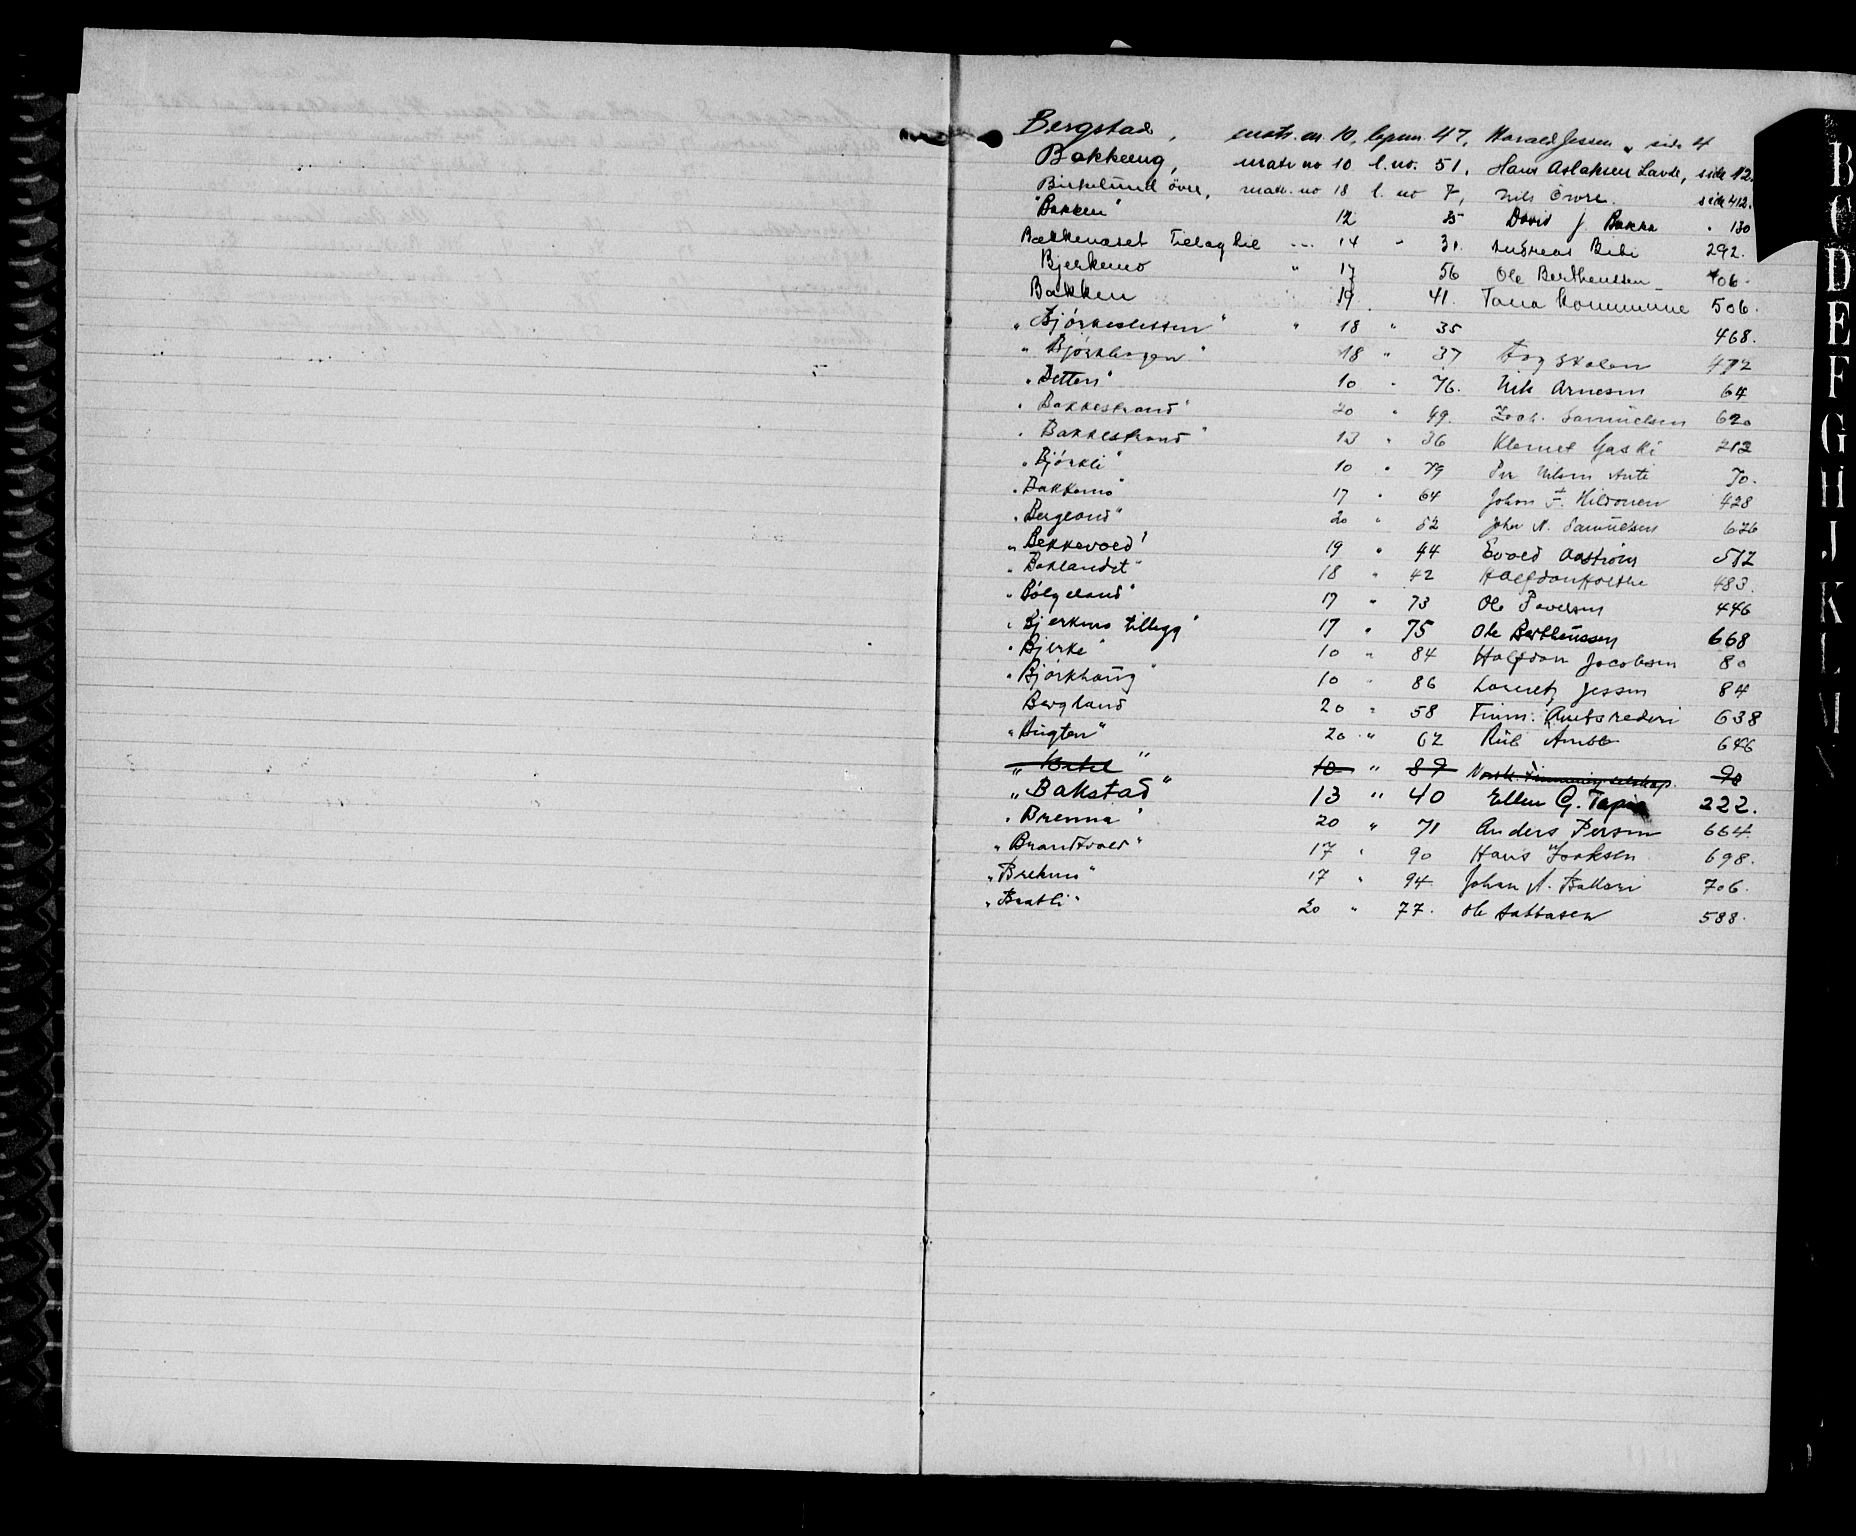 Bergstad, matr. nr. 10, löpnr. 47, Harald Jessen, side 4
Bakkeng, matr no 10 l. no. 51, Hans Aslaksen Lavde, side 12.
Birkelund övre, matr. no 18 l. no 7, Nils Övre. side 412.
"Bakken" 12 25 David J. Bakka " 130
Bakkenæset Tillag til 14 " 31. Andreas Bebi 292.
Bjerkemo " 17 56 Ole Berthenssen 406.
Bakken 19. 41. Tana kommune 506.
"Björkesletten" " 18 " 35 468.
"Björkhagen" 18 " 37 472
"Betten" 10 " 76. Nils Arnesen 64
"Bakkestrand" 20 " 49. Samuelsen 620
"Bakkestrand" 13 " 36 Klemet Gaski 212
"Björkli" 10 " 79 Per Nilsen Anti 70.
"Bakkemo" 17 " 64 Johan F. Hildonen 428
"Bergland" 20 " 52 John N. Samuelsen 626
"Bekkevold" 19 " 44 Evald Aaström 512
"Baklandet" 18 " 42 Halfdan Holthe 483.
"Bölgeland" 17 " 73 Ole Paulsen 446
"Bjerkmo tillegg" 17 " 75 Ole Berthenssen 668
"Bjerke" 10 " 84 Halfdan Jacobsen 80
"Björkhaug" 10 " 86 Lorentz Jessen 84
Bergland 20 " 58 Finm. Amtsrederi 638
"Bugten" 20 " 62 646
" " 10 " 89 Norsk 90
"Bakstad" 13 " 40 Ellen G. Tapio 222.
"Brenna" 20 " 71 Anders Persen 664.
"Brandtvold" 17 " 90 Hans Isaksen 698.
"Brekmo" 17 " 94 Johan A. Ballari 706.
"Bratli" 20 " 77. Ole 588.
B
C
D
E
F
G
H
J
K
L
M